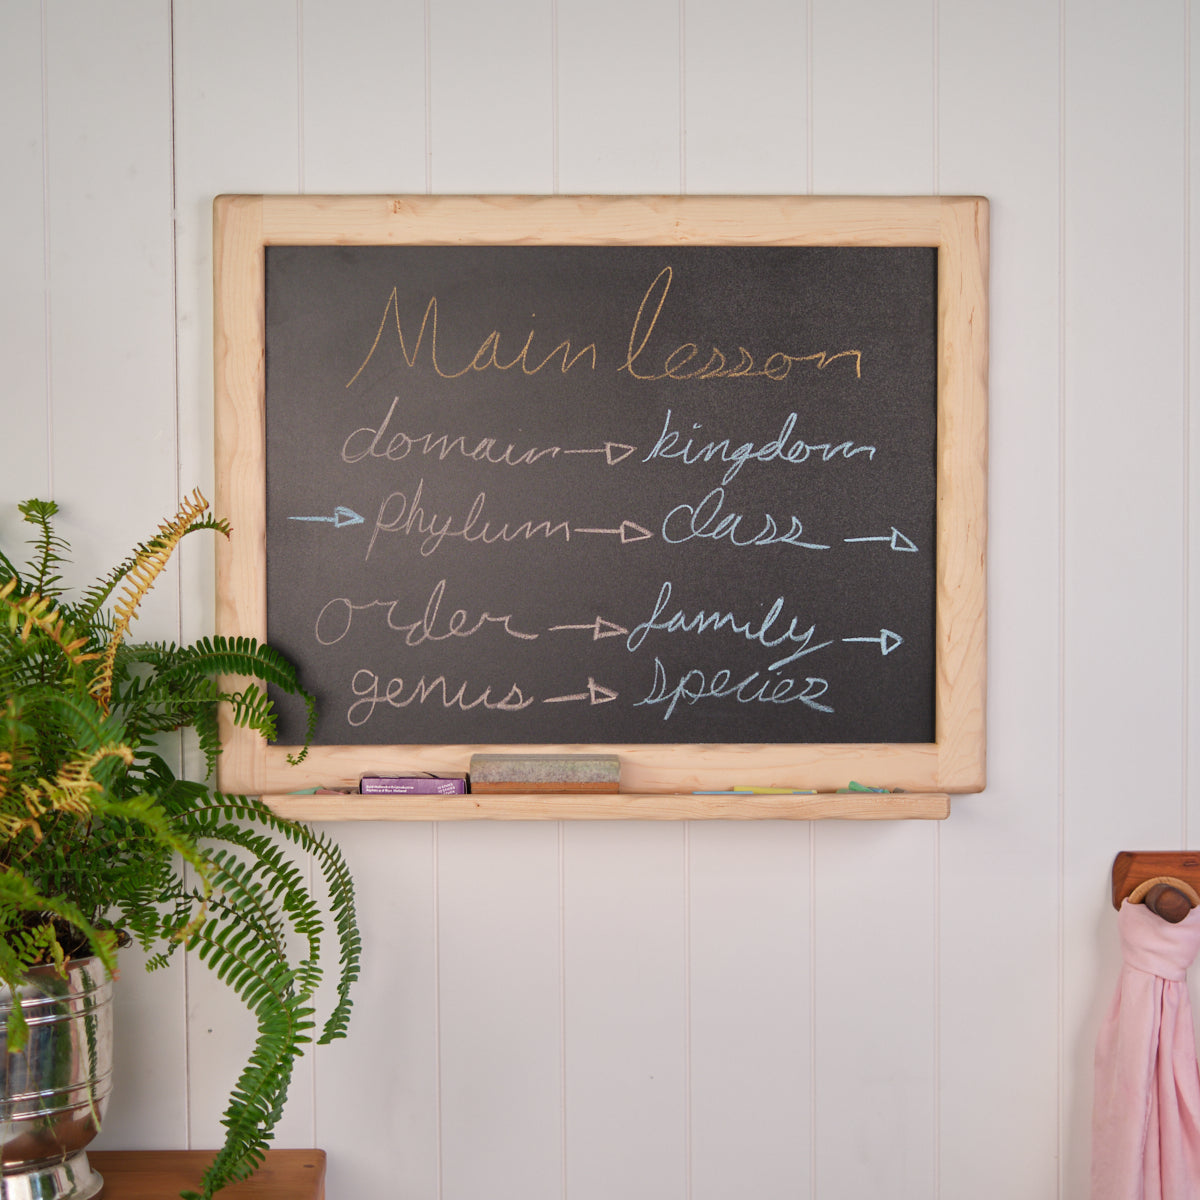 Main lesson
domain → kingdom
→ phylum → class →
order → family →
genus → species